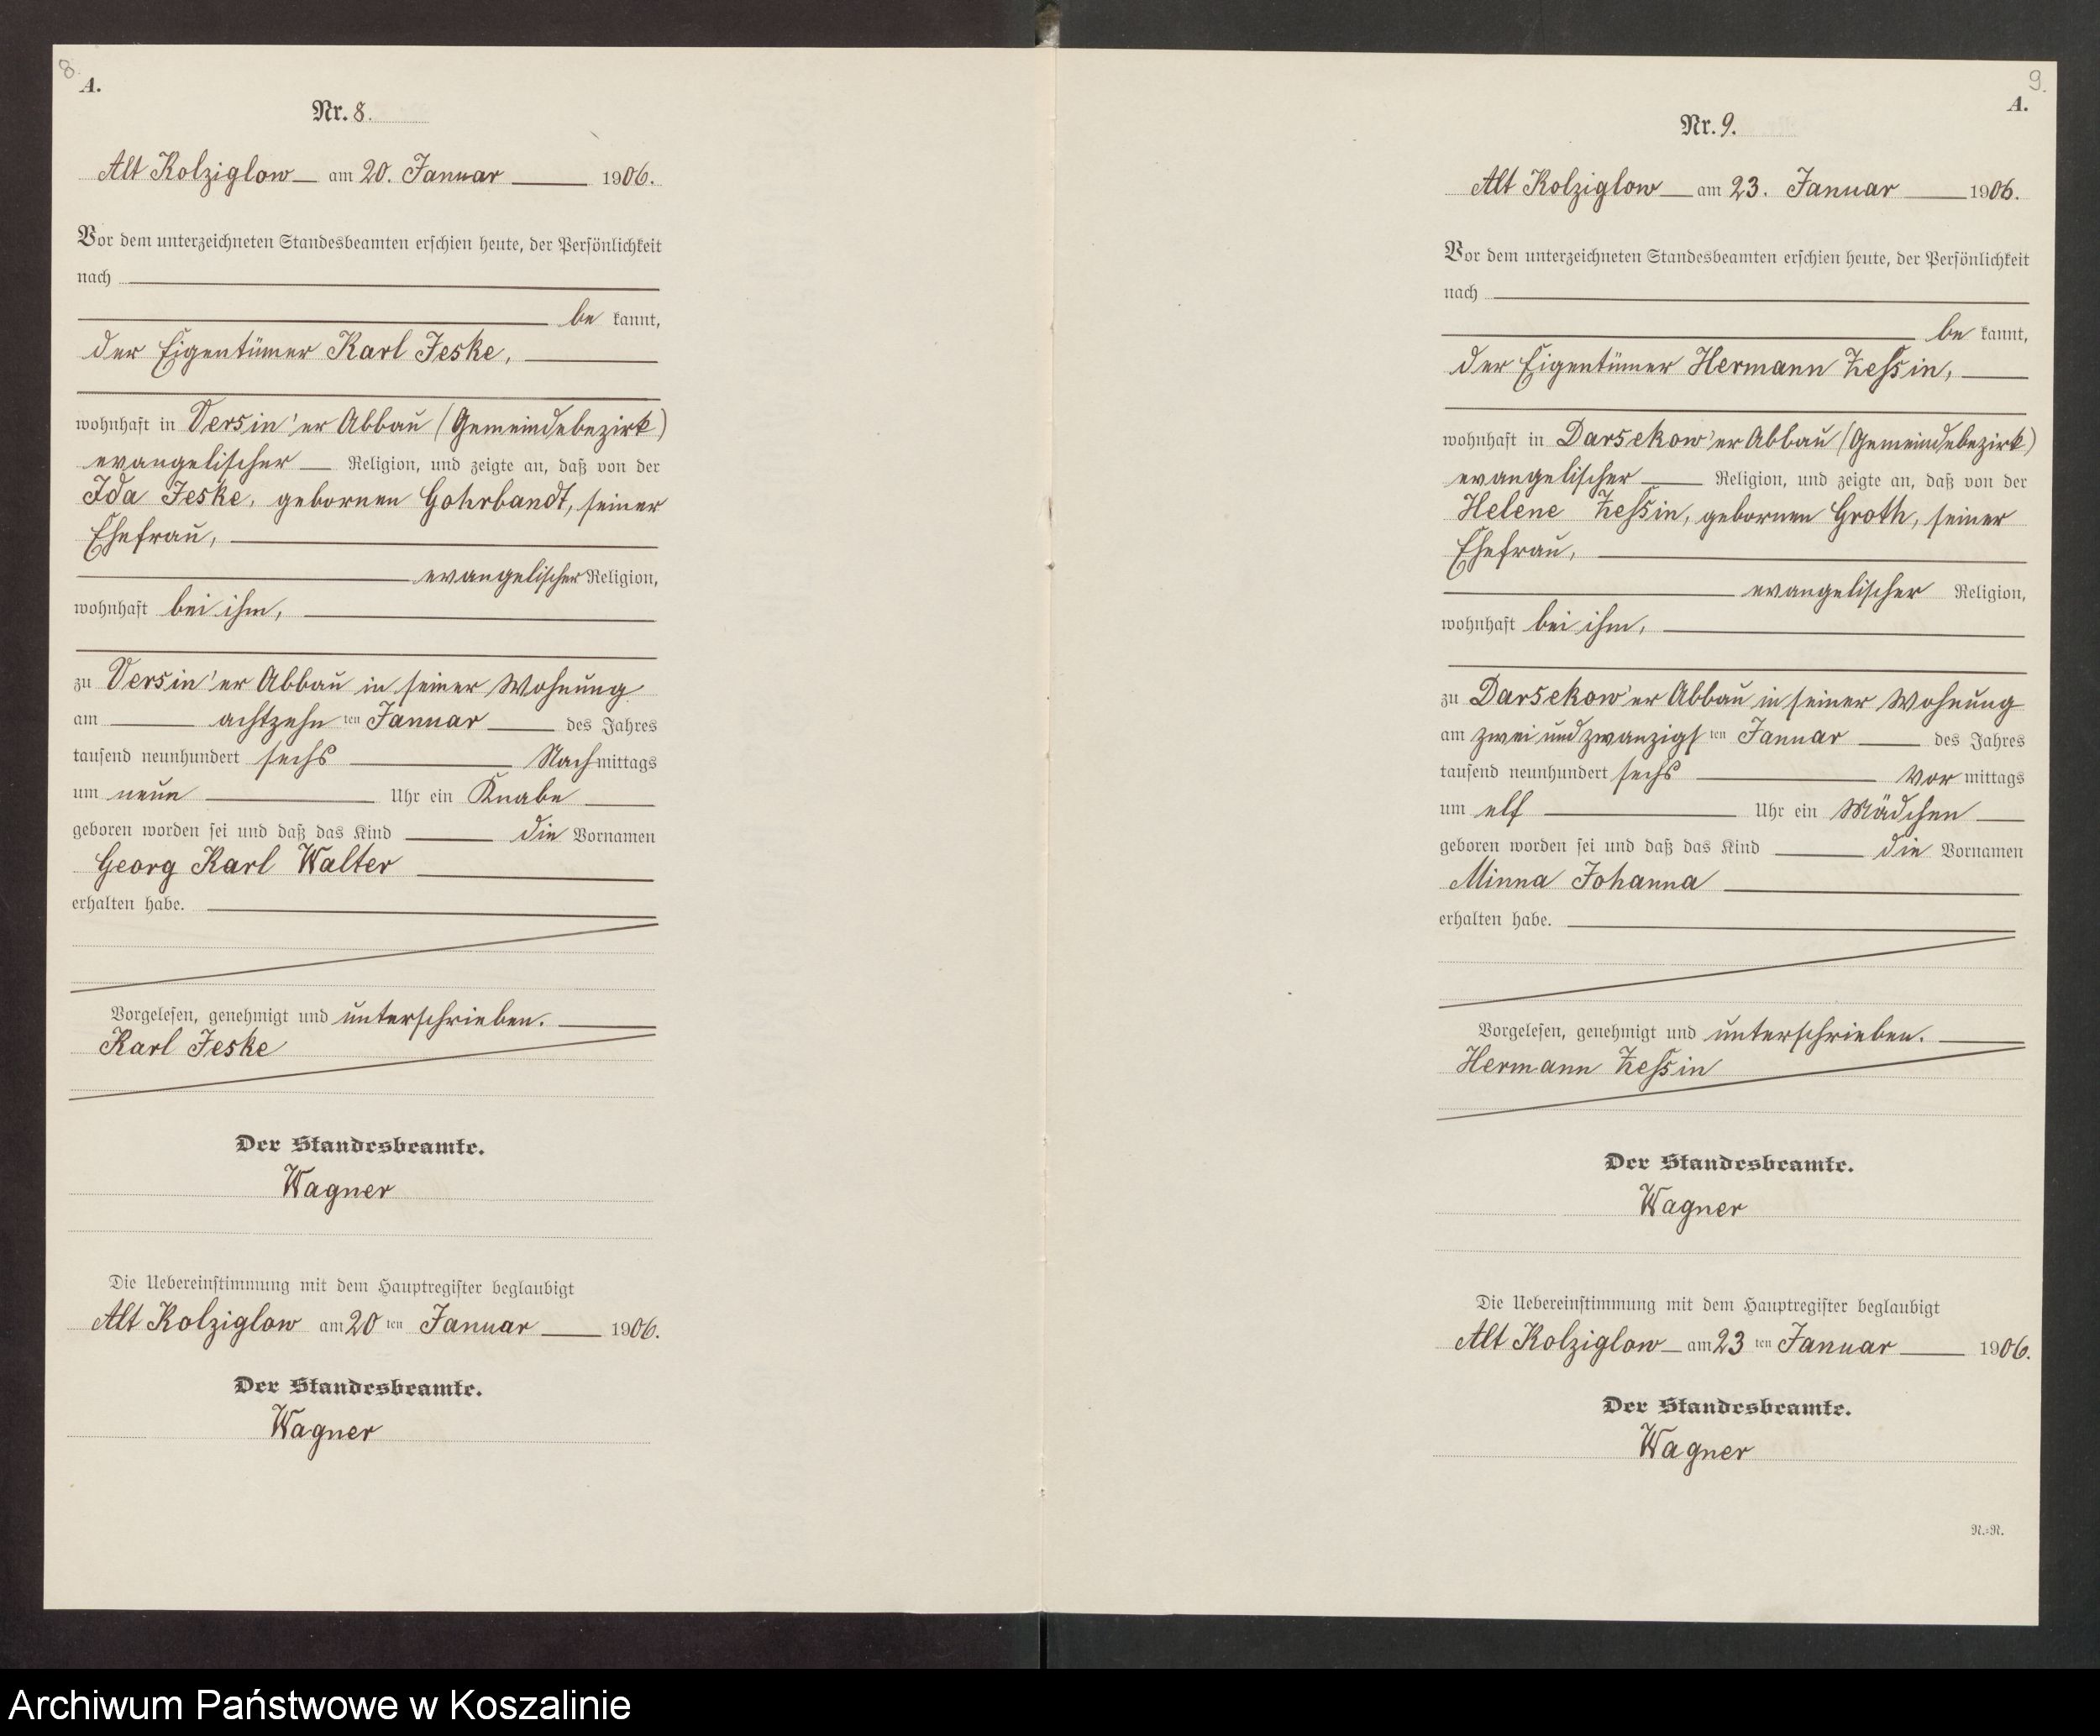 8.
A.
Nr. 8.
Alt Kolziglow am 20. Januar 1906.
Vor dem unterzeichneten Standesbeamten erschien heute, der Persönlichkeit
nach
be kannt,
der Eigentümer Karl Jeske,
wohnhaft in Versin'er Abbau (Gemeindebezirk)
evangelischer Religion, und zeigte an, daß von der
Ida Jeske, gebornen Gohrbandt, seiner
Ehefrau,
evangelischer Religion,
wohnhaft bei ihm,
zu Versin'er Abbau in seiner Wohnung
am achtzehn ten Januar des Jahres
tausend neunhundert sechs Nachmittags
um neun Uhr ein Knabe
geboren worden sei und daß das Kind die Vornamen
Georg Karl Walter
erhalten habe.
Vorgelesen, genehmigt und unterschrieben.
Karl Jeske
Der Standesbeamte.
Wagner
Die Uebereinstimmung mit dem Hauptregister beglaubigt
Alt Kolziglow am 20 ten Januar 1906.
Der Standesbeamte.
Wagner
9.
A.
Nr. 9.
Alt Kolziglow am 23. Januar 1906.
Vor dem unterzeichneten Standesbeamten erschien heute, der Persönlichkeit
nach
be kannt,
der Eigentümer Hermann Zessin,
wohnhaft in Darsekow'er Abbau (Gemeindebezirk)
evangelischer Religion, und zeigte an, daß von der
Helene Zessin, gebornen Groth, seiner
Ehefrau,
evangelischer Religion,
wohnhaft bei ihm,
zu Darsekow'er Abbau in seiner Wohnung
am zwei und zwanzigs ten Januar des Jahres
tausend neunhundert sechs Vor mittags
um elf Uhr ein Mädchen
geboren worden sei und daß das Kind die Vornamen
Minna Johanna
erhalten habe.
Vorgelesen, genehmigt und unterschrieben.
Hermann Zessin
Der Standesbeamte.
Wagner
Die Uebereinstimmung mit dem Hauptregister beglaubigt
Alt Kolziglow am 23 ten Januar 1906.
Der Standesbeamte.
Wagner
N.=R.
Archiwum Państwowe w Koszalinie